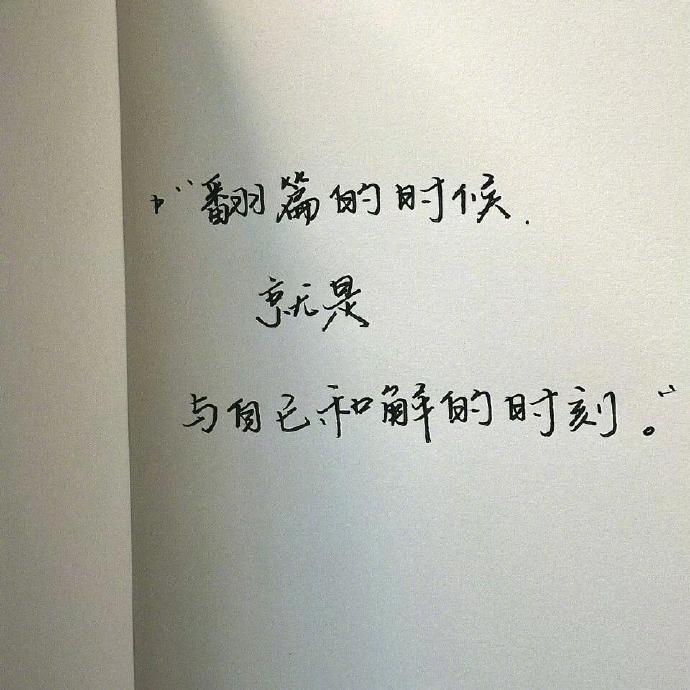 “翻篇的时候.
就是
与自己和解的时刻。”